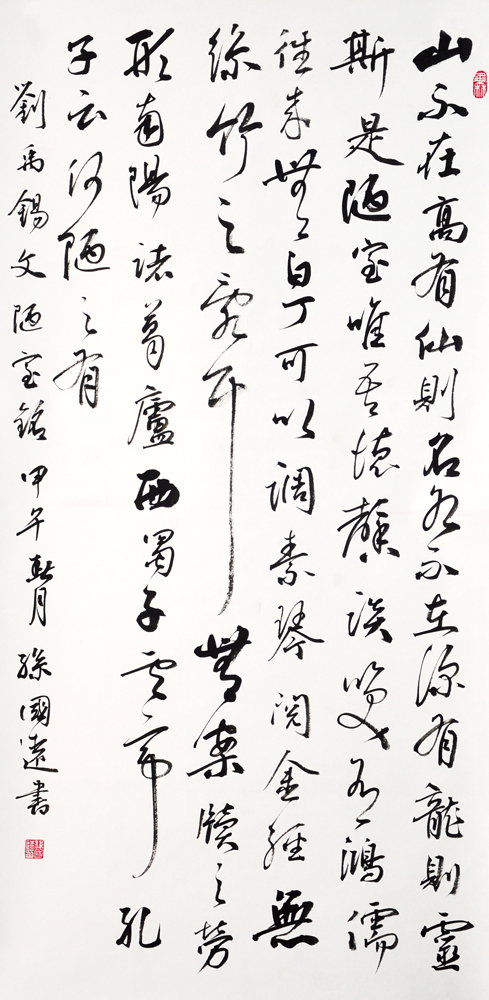 山不在高有仙則名水不在深有龍則靈
斯是陋室唯吾德馨談笑有鴻儒
往來無白丁可以調素琴閱金經無
絲竹之亂耳無案牘之勞
形南陽諸葛廬西蜀子雲亭孔
子云何陋之有
劉禹錫文陋室銘甲午春月孫國遠書